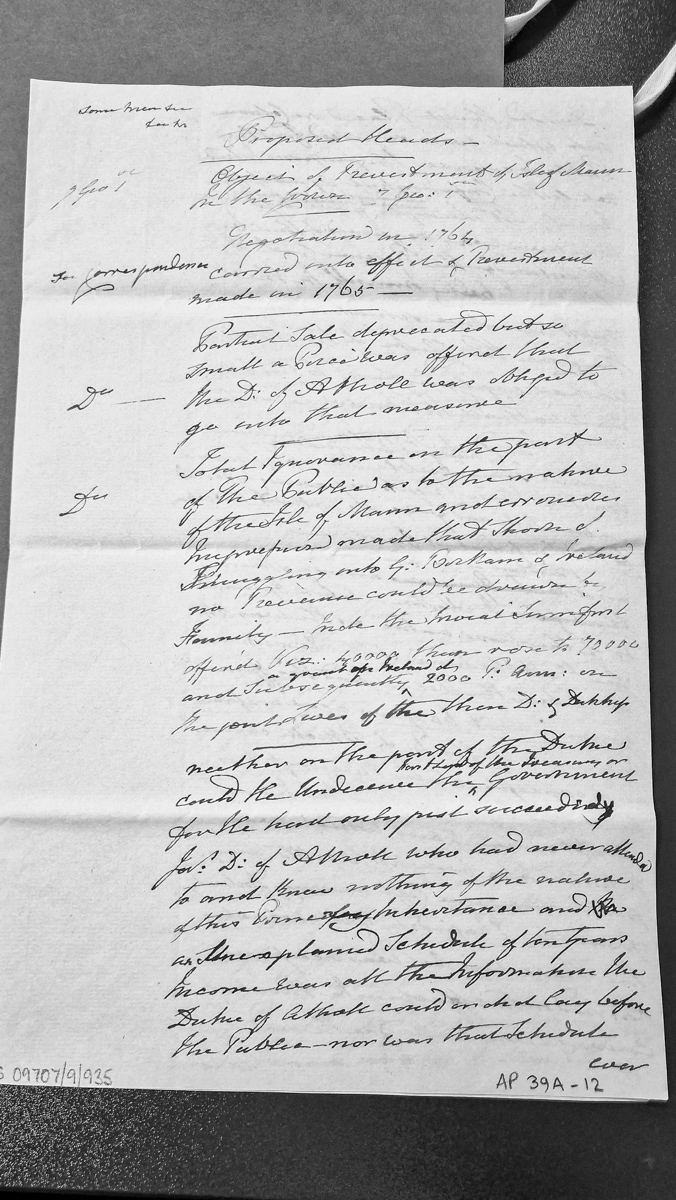 Proposed Heads –
7 Geo 1st
Object of Revestment of Isle of Mann
In the Crown 7 Geo: 1st
Negotiation in 1764
See Correspondence
carried into effect & Revestment
made in 1765 —
Partial Sale deprecated but so
small a Price was offered that
Do —
the D: of Atholl was obliged to
go into that measure
Total Ignorance on the part
Do
of the Public as to the nature
of the Isle of Mann and erroneous
Impression made that Shorn of
Smuggling into G: Britain & Ireland
no Revenue could be drawn
Family – Vide the
offer'd Viz:: 40000 then rose to 70000
a grant on Ireland of
and Subsequently 2000 Pr Ann: on
the joint Lives of the then D: & Dutchess
neither on the part of the Duke
first Lord of the Treasury or
could he Undeceive the Government
for he had only just succeeded
Jas. D: of Atholl who had never attended
to and knew nothing of the nature
of this Inheritance and
an Unexplained Schedule of ten Years
Income was all the Information the
Duke of Atholl could in did lay before
the Public – nor was that Schedule
ever
09707/9/935
AP 39A-12